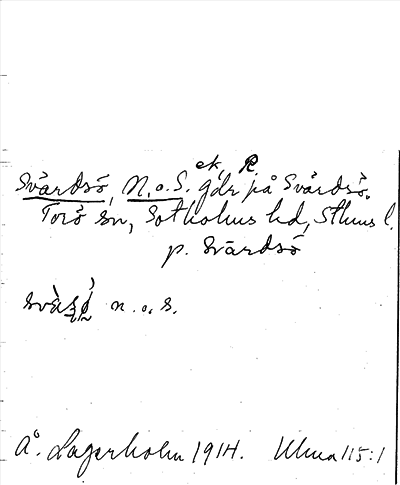 ek, R.
Svärdsö, N. o. S. gdr på Svärdsö.
Torö sn, Sotholms hd, Sthms l.
p. Svärdsö
n. o. s.
Å. Lagerholm 1914. Ulma 115:1